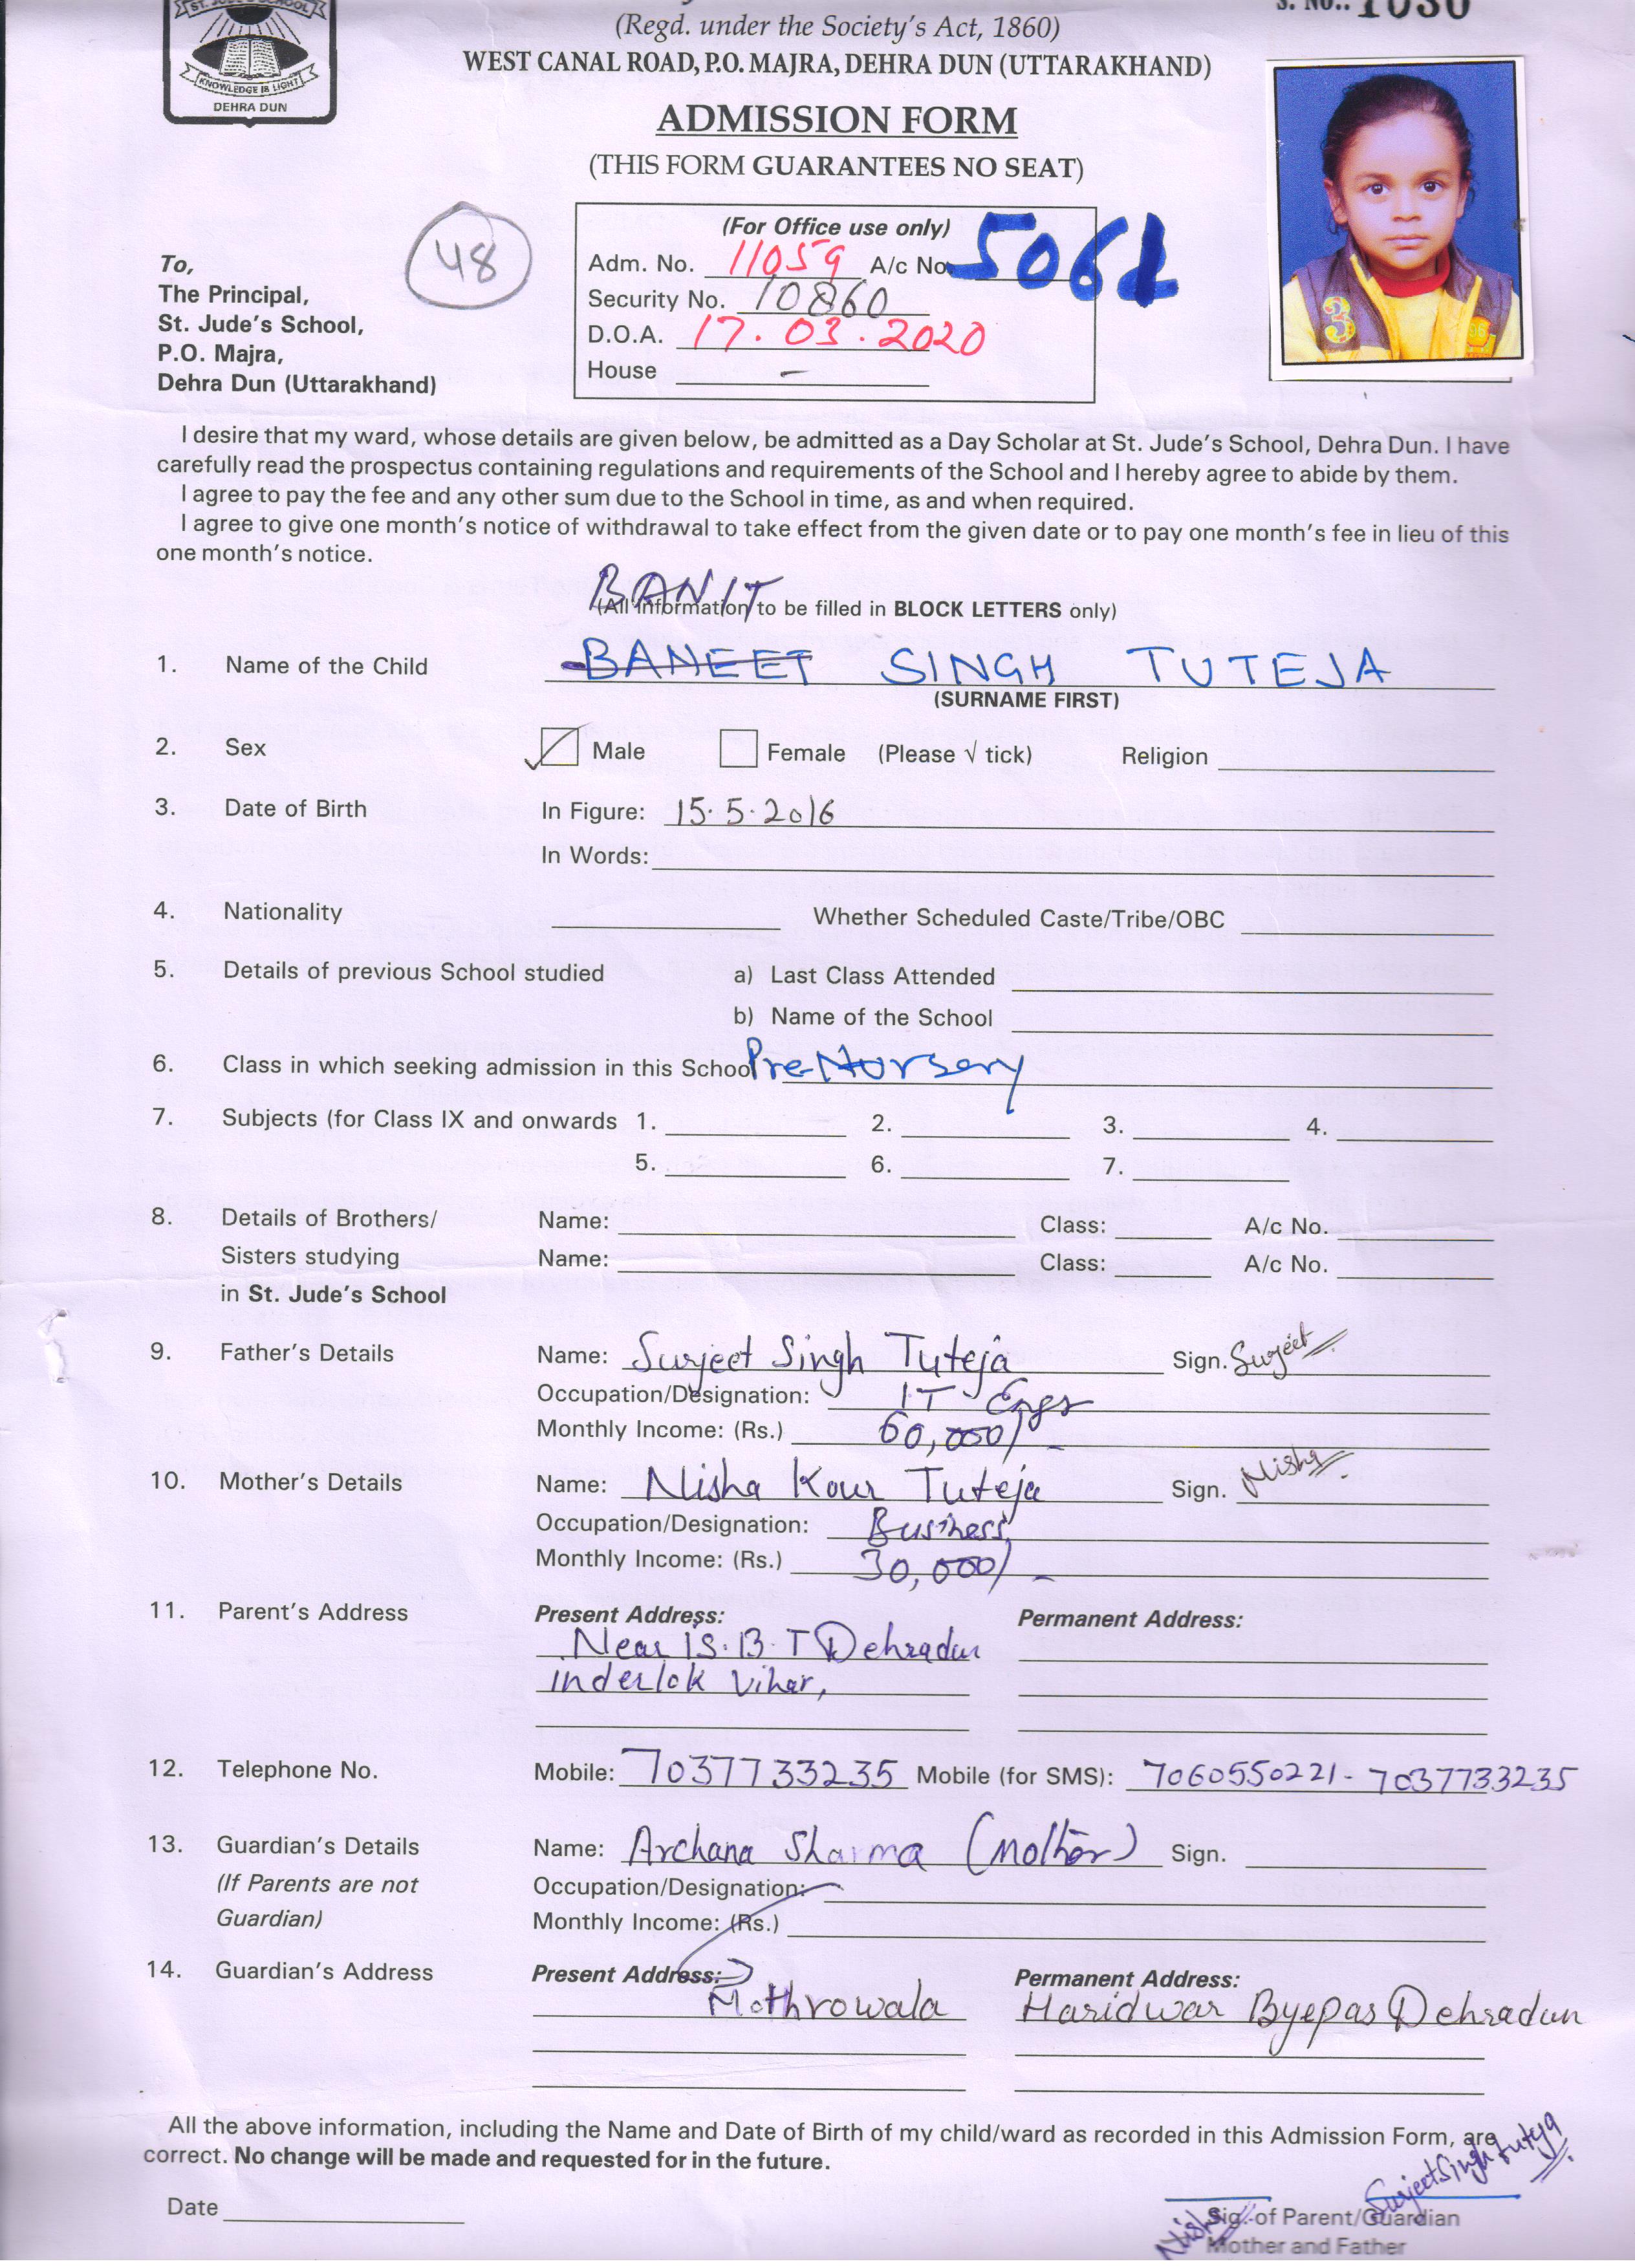 ST. JUDE'S SCHOOL
KNOWLEDGE IS LIGHT
DEHRA DUN
S. No.. 1030
(Regd. under the Society's Act, 1860)
WEST CANAL ROAD, P.O. MAJRA, DEHRA DUN (UTTARAKHAND)
ADMISSION FORM
(THIS FORM GUARANTEES NO SEAT)
48
(For Office use only)
Adm. No. 11059 A/c No 5061
Security No. 10860
D.O.A. 17.03.2020
House -
To,
The Principal,
St. Jude's School,
P.O. Majra,
Dehra Dun (Uttarakhand)
I desire that my ward, whose details are given below, be admitted as a Day Scholar at St. Jude's School, Dehra Dun. I have
carefully read the prospectus containing regulations and requirements of the School and I hereby agree to abide by them.
I agree to pay the fee and any other sum due to the School in time, as and when required.
I agree to give one month's notice of withdrawal to take effect from the given date or to pay one month's fee in lieu of this
one month's notice.
BANIT
(All information to be filled in BLOCK LETTERS only)
1. Name of the Child BANEET SINGH TUTEJA
(SURNAME FIRST)
2. Sex Male Female (Please √ tick) Religion
3. Date of Birth In Figure: 15.5.2016
In Words:
4. Nationality Whether Scheduled Caste/Tribe/OBC
5. Details of previous School studied a) Last Class Attended
b) Name of the School
6. Class in which seeking admission in this School Pre-Nursery
7. Subjects (for Class IX and onwards 1. 2. 3. 4.
5. 6. 7.
8. Details of Brothers/ Name: Class: A/c No.
Sisters studying Name: Class: A/c No.
in St. Jude's School
9. Father's Details Name: Surjeet Singh Tuteja Sign. Surjeet
Occupation/Designation: IT Engr
Monthly Income: (Rs.) 60,000/-
10. Mother's Details Name: Nisha Kour Tuteja Sign. Nisha
Occupation/Designation: Business
Monthly Income: (Rs.) 30,000/-
11. Parent's Address Present Address: Permanent Address:
Near I.S.B.T Dehradun
inderlok Vihar,
12. Telephone No. Mobile: 7037733235 Mobile (for SMS): 7060550221 - 7037733235
13. Guardian's Details Name: Archana Sharma (Mother) Sign.
(If Parents are not Occupation/Designation:
Guardian) Monthly Income: (Rs.)
14. Guardian's Address Present Address: Permanent Address:
Mothrowala Haridwar Byepas Dehradun
All the above information, including the Name and Date of Birth of my child/ward as recorded in this Admission Form, are
correct. No change will be made and requested for in the future.
Surjeet Singh Tuteja
Date
Nisha Sig. of Parent/Guardian
Mother and Father